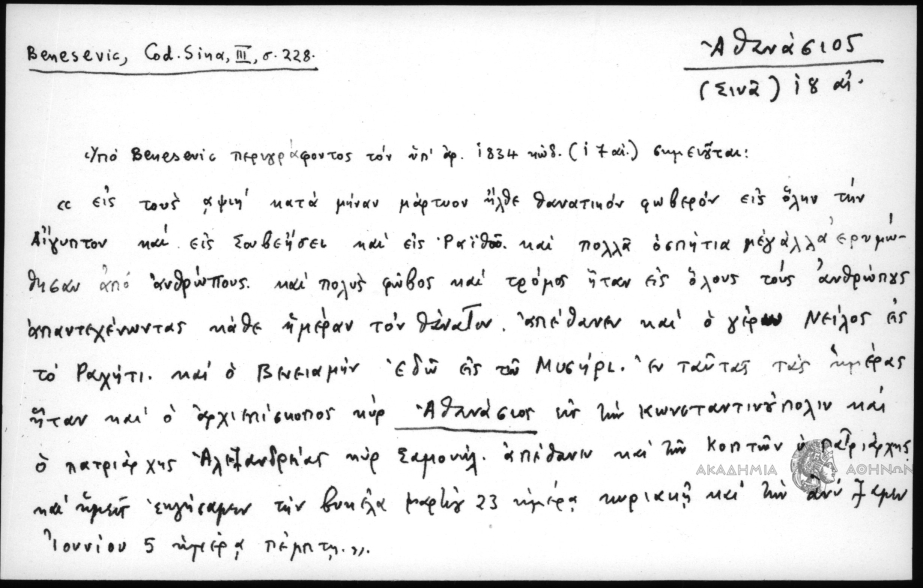 Benesevic, Cod. Sina, III, σ. 228.
Ἀθανάσιος
(Σινᾶ) ιη αἰ.
Ὑπὸ Benesevic περιγράφοντος τὸν ὑπ' ἀρ. 1834 κώδ. (17 αἰ.) σημειοῦται:
« εἰς τοὺς αψιή κατὰ μήναν μάρτυον ἦλθε θανατικόν φωβερόν εἰς ὅλην τὴν
Αἴγυπτον καὶ εἰς Σουβεήσει καὶ εἰς Ραϊθοῦ. καὶ πολλὰ ὁσπήτια μεγάλλα ἐρυμώ-
θησαν ἀπό ἀνθρώπους. καὶ πολὺς φώβος καὶ τρόμος ἦταν εἰς ὅλους τοὺς ἀνθρώπους
ἀπαντεχένωντας κάθε ἡμέραν τὸν θάνατον. ἀπέθανεν καὶ ὁ γέρων Νεῖλος εἰς
τὸ Ραχήτι. καὶ ὁ Βενειαμὴν ἐδῶ εἰς τὸ Μυσήρι. Ἐν ταῦτας τὰς ἡμέρας
ἦταν καὶ ὁ ἀρχιεπίσκοπος κύρ Ἀθανάσιος εἰς τὴν Κωνσταντινούπολιν καὶ
ὁ πατριάρχης Ἀλεξανδρείας κύρ Σαμουήλ. ἀπέθανεν καὶ τῶν Κοπτῶν ὁ πατριάρχης
καὶ ἡμεῖς ἐκλήσαμεν τὴν βυκέλα μαρτίου 23 ἡμέρα κυριακῇ καὶ τὴν
Ἰουνίου 5 ἡμέρᾳ πέμπτῃ.».
ΑΚΑΔΗΜΙΑ ΑΘΗΝΩΝ